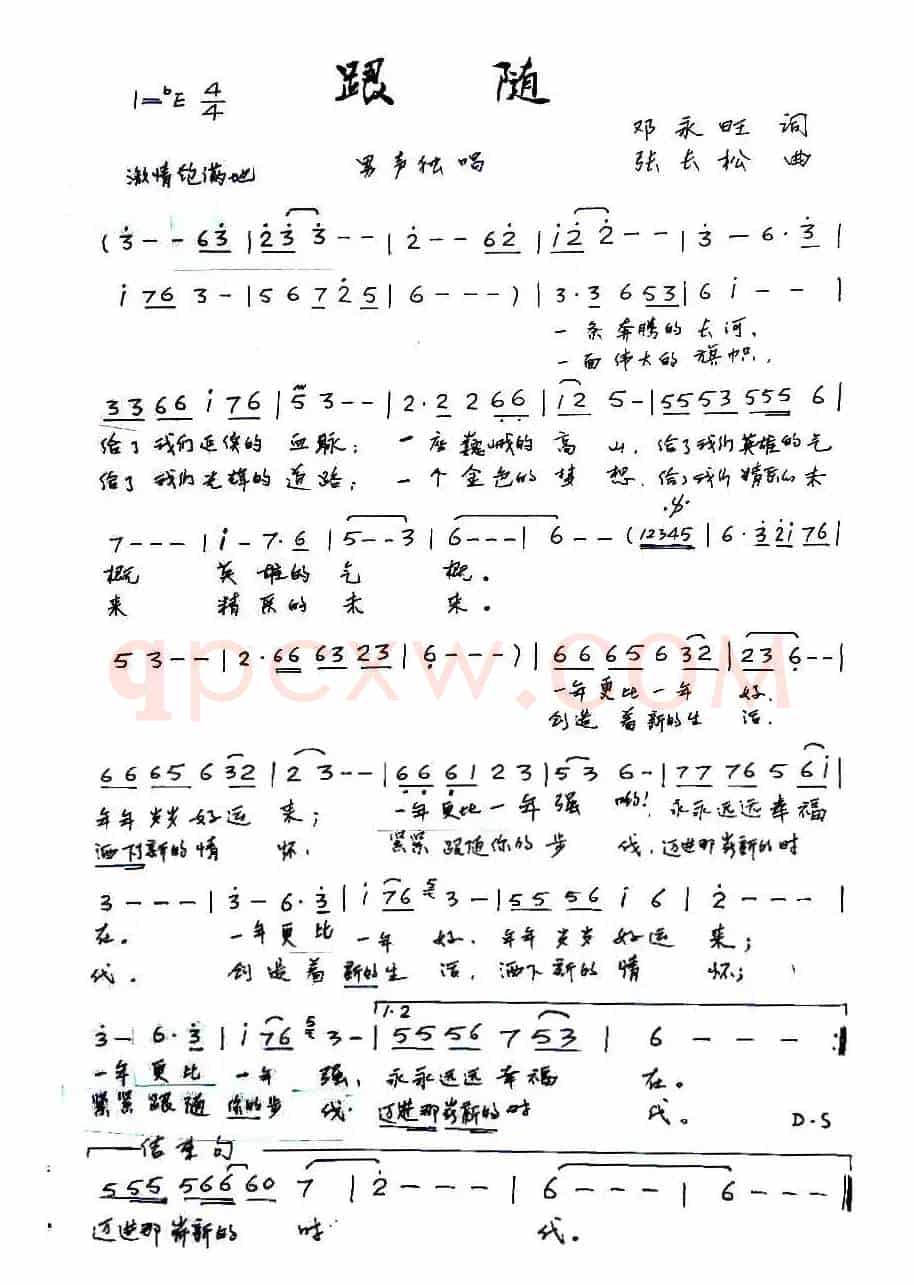 跟 随
1=♭E 4/4
邓永旺 词
激情饱满地 男声独唱 张长松 曲
(3 - - 63 | 23 3 - - | 2 - - 62 | 12 2 - - | 3 - 6· 3 |
1 76 3 - | 5 6 7 2 5 | 6 - - - ) | 3·3 6 53 | 6 1 - - |
一条奔腾的长河,
一面伟大的旗帜,
33 66 1 76 | 5 3 - - | 2·2 2 66 | 12 5 - | 5553 555 6 |
给了我们延续的血脉; 一座巍峨的高山, 给了我们英雄的气
给了我们光辉的道路; 一个金色的梦想, 给了我们精彩的未
7 - - - | 1 - 7·6 | 5 - - 3 | 6 - - - | 6 - - (12345 | 6·3 21 76 |
概 英雄的气 概。
来 精彩的未 来。
5 3 - - | 2·66 63 23 | 6 - - - ) | 66 65 6 32 | 23 6 - - |
一年更比一年 好,
创造着新的生 活,
66 65 6 32 | 2 3 - - | 66 61 2 3 | 53 6 - | 77 76 5 61 |
年年岁岁好运 来; 一年更比一年强 哟! 永永远远幸福
洒下新的情 怀, 紧紧跟随你的步 伐, 迈进那崭新的时
3 - - - | 3 - 6·3 | 1 76 5 3 - | 55 56 1 6 | 2 - - - |
在。 一年更比一年 好, 年年岁岁好运 来;
代。 创造着新的生 活, 洒下新的情 怀;
3 - 6·3 | 1 76 5 3 - | 1·2 55 56 7 53 | 6 - - - :|
一年更比一年 强, 永永远远幸福 在。
紧紧跟随你的步 伐, 迈进那崭新的时 代。 D·S
结束句
555 566 60 7 | 2 - - - | 6 - - - | 6 - - - ||
迈进那崭新的 时 代。
qpcxw.COM